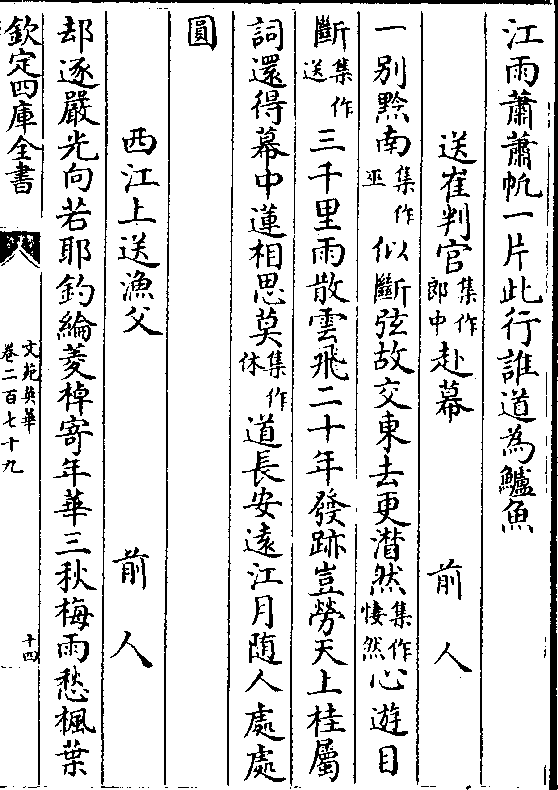 江雨蕭蕭帆一片此行誰道為鱸魚
送崔判官集作郎中赴幕　前人
一別黔南集作巫似斷弦故交東去更潸然集作悽然心遊目
斷集作送三千里雨散雲飛二十年發跡豈勞天上桂屬
詞還得幕中蓮相思莫集作休道長安遠江月隨人處處
圓
西江上送漁父　前人
却逐嚴光向若耶釣綸菱棹寄年華三秋梅雨愁楓葉
欽定四庫全書
文苑英華
卷二百七十九
十四